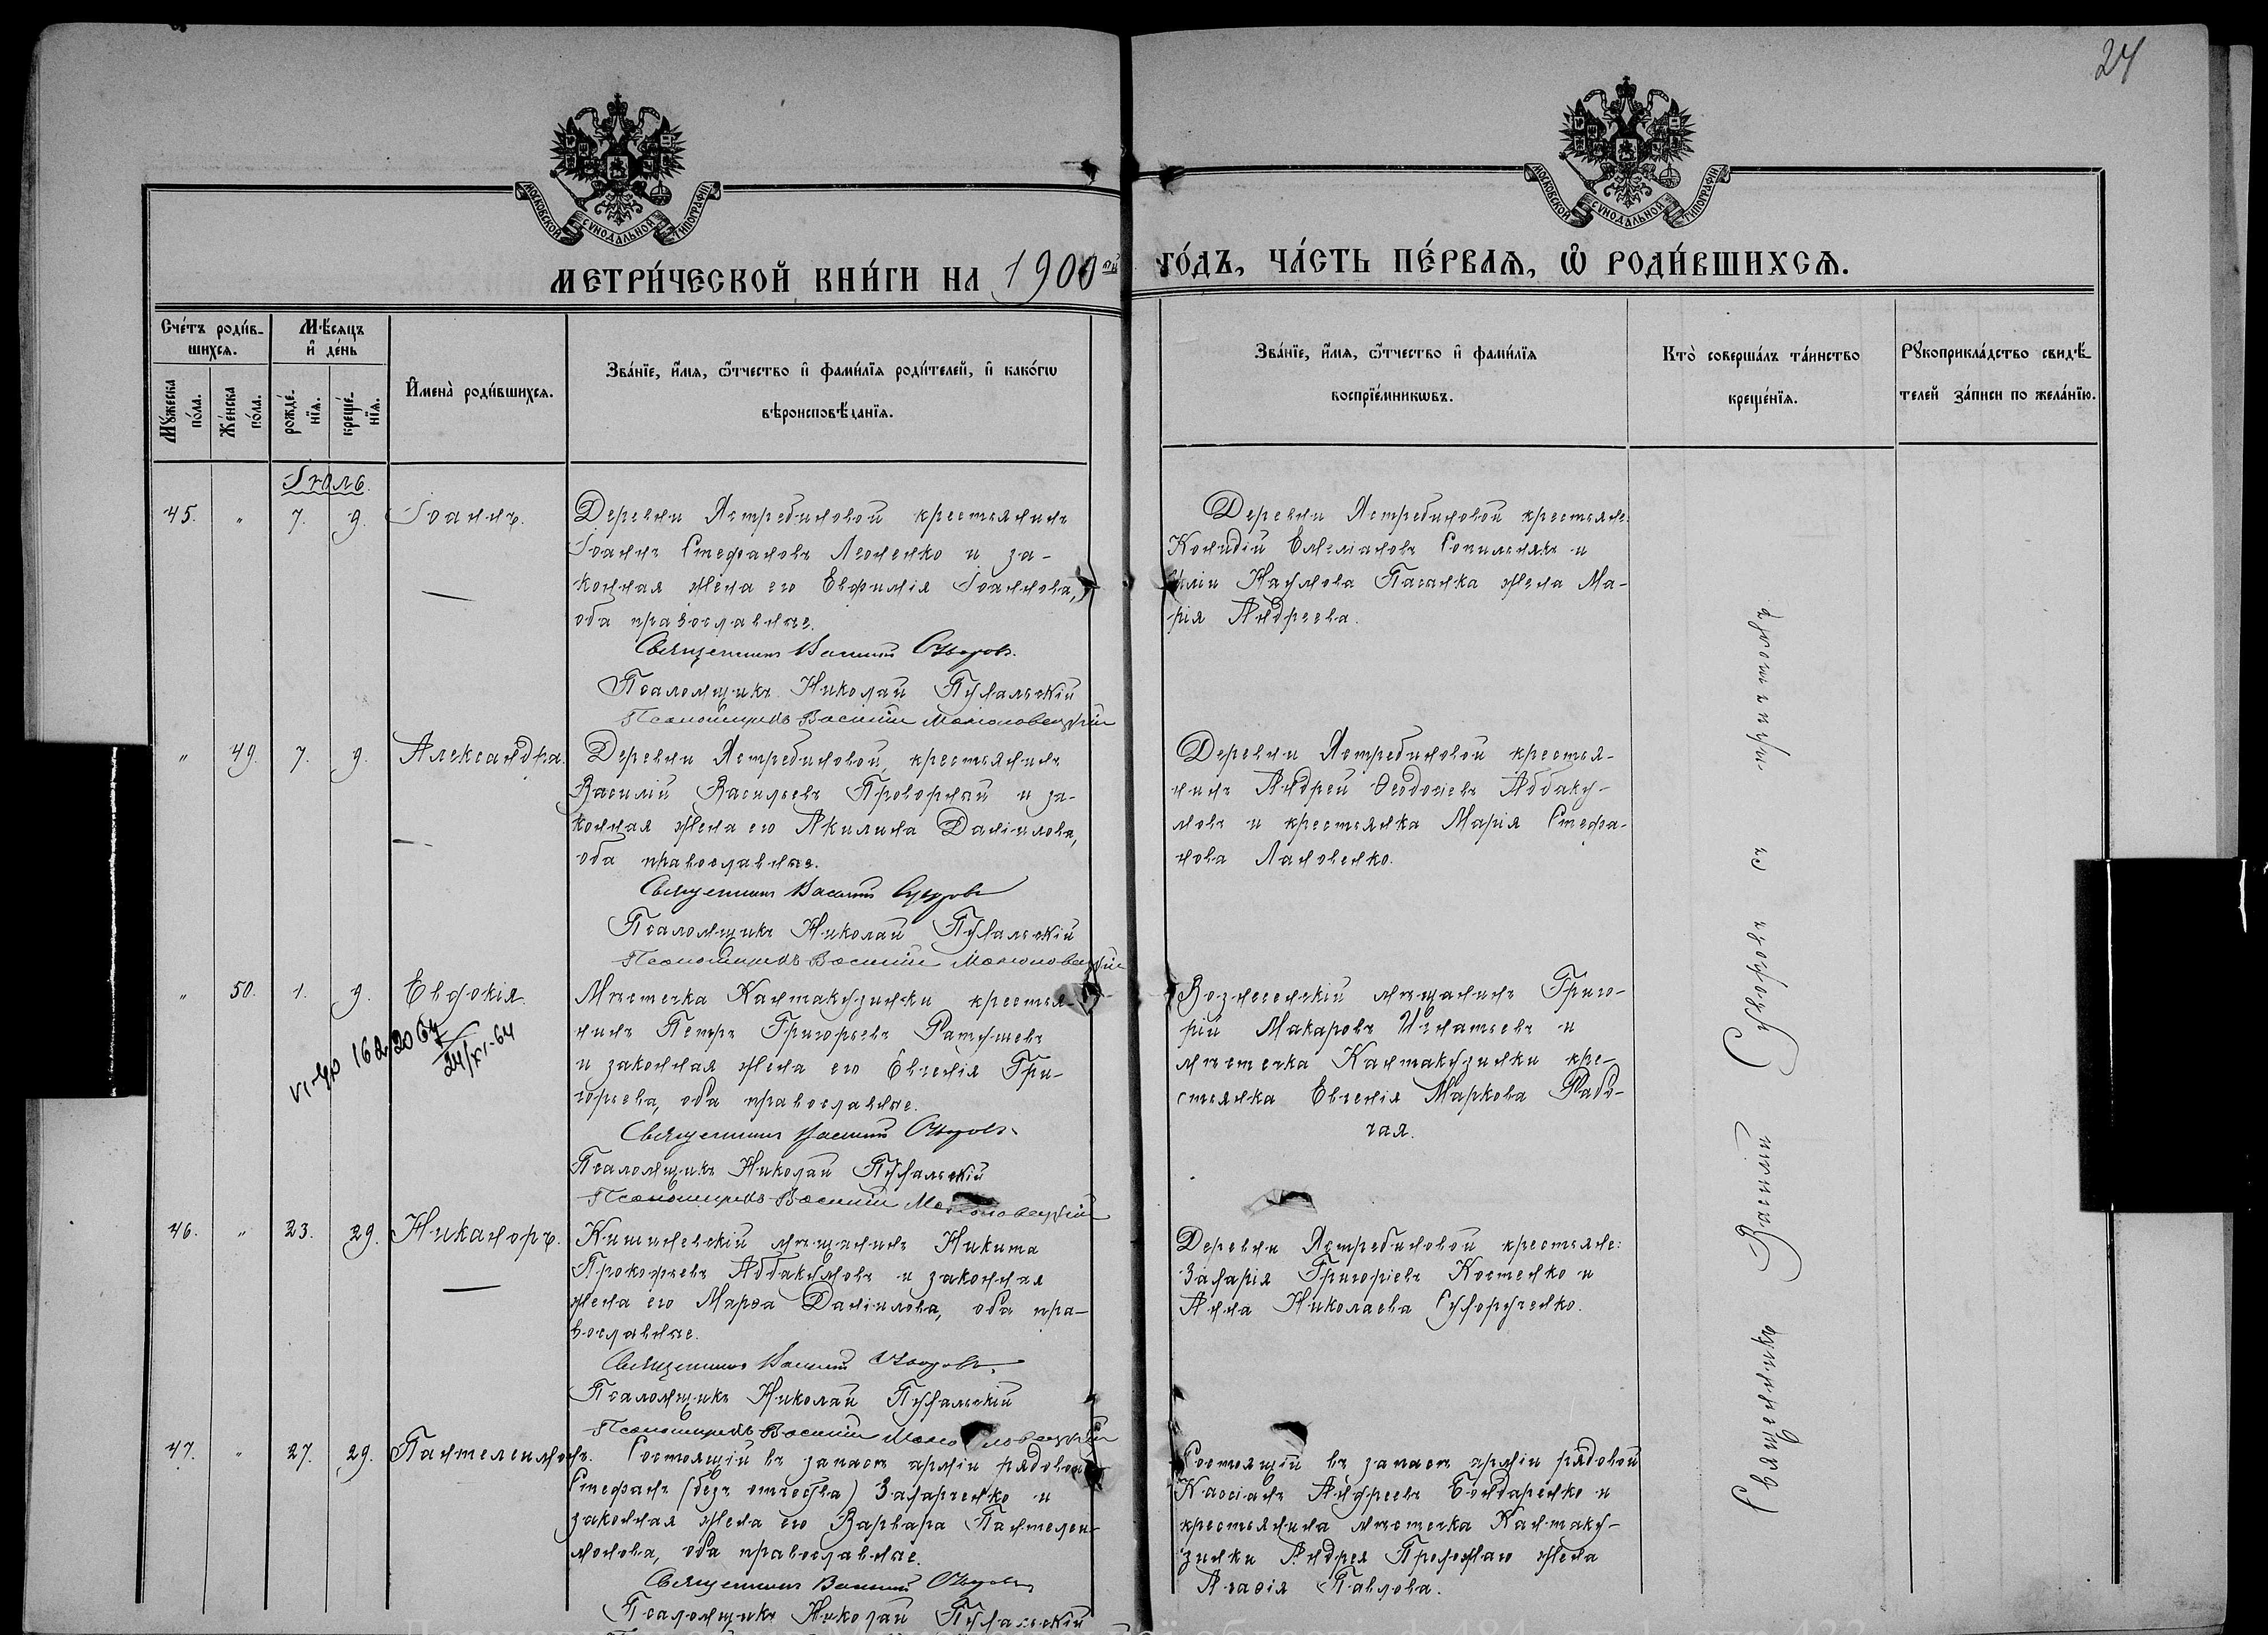 24
МОСКОВСКОЙ СѴНОДАЛЬНОЙ ТИПОГРАФІИ
МОСКОВСКОЙ СѴНОДАЛЬНОЙ ТИПОГРАФІИ
МЕТРИ́ЧЕСКОЙ КНИ́ГИ НА 1900ый ГО́ДЪ, ЧА́СТЬ ПЕ́РВАѦ, Ѡ҆ РОДИ́ВШИХСѦ.
Сче́тъ роди́в-
шихсѧ.
Мꙋ́жеска
по́ла.
Же́нска
по́ла.
Мѣ́сѧцъ
и҆ де́нь
рожде́-
нїѧ.
креще́-
нїѧ.
И҆мена̀ роди́вшихсѧ.
Зва́нїе, и҆́мѧ, ѻ҆́тчество и҆ фами́лїѧ роди́телей, и҆ како́гѡ
вѣроисповѣ́данїѧ.
Зва́нїе, и҆́мѧ, ѻ҆́тчество и҆ фами́лїѧ
воспрїе́мникѡвъ.
Кто̀ соверша́лъ та́инство
креще́нїѧ.
Рꙋкоприкла́дство свидѣ́-
телей за́писи по жела́нїю.
Іюль.
45. " 7. 9. Іоаннъ.
Деревни Ястребиновой крестьянинъ
Іоаннъ Стефановъ Леоненко и за-
конная жена его Евфимія Іоаннова,
оба православные.
Священникъ Василій
Псаломщикъ Николай
Псаломщикъ Василій
Деревни Ястребиновой крестьяне:
Емеліановъ и
Наумова жена Ма-
рія Андреева.
" 49. 7. 9. Александра.
Деревни Ястребиновой, крестьянинъ
Василій Васильевъ Проворный и за-
конная жена его Акилина Даніилова,
оба православные.
Священникъ Василій
Псаломщикъ Николай
Псаломщикъ Василій
Деревни Ястребиновой крестья-
нинъ Андрей Ѳеодосіевъ Аббаку-
мовъ и крестьянка Марія Стефа-
нова Лановенко.
" 50. 1. 9. Евдокія.
VI-ЦЮ 162020 64
24/XI-64
Мѣстечка Кантакузинки крестья-
нинъ Петръ Григорьевъ Ратушевъ
и законная жена его Евгенія Гри-
горьева, оба православные.
Священникъ Василій
Псаломщикъ Николай
Псаломщикъ Василій
Вознесенскій мѣщанинъ Григо-
рій Макаровъ Игнатьевъ и
мѣстечка Кантакузинки кре-
стьянка Евгенія Маркова Рабо-
чая.
46. " 23. 29. Никаноръ.
Кишиневскій мѣщанинъ Никита
Прокофьевъ Аббакумовъ и законная
жена его Марѳа Даніилова, оба пра-
вославные.
Священникъ Василій
Псаломщикъ Николай
Псаломщикъ Василій
Деревни Ястребиновой крестьяне:
Захарія Григоріевъ Костенко и
Анна Николаева Сухорученко.
47. " 27. 29. Пантелеимонъ.
Состоящій въ запасѣ арміи рядовой
Стефанъ (безъ отчества) Захарченко и
законная жена его Варвара Пантелеи-
монова, оба православные.
Священникъ Василій
Псаломщикъ Николай
Состоящій въ запасѣ арміи рядовой
Кассіанъ Андреевъ Бондаренко и
крестьянина мѣстечка Кантаку-
зинки Андрея жена
Агафія Павлова.
Священникъ Василій Суворовъ съ причтомъ